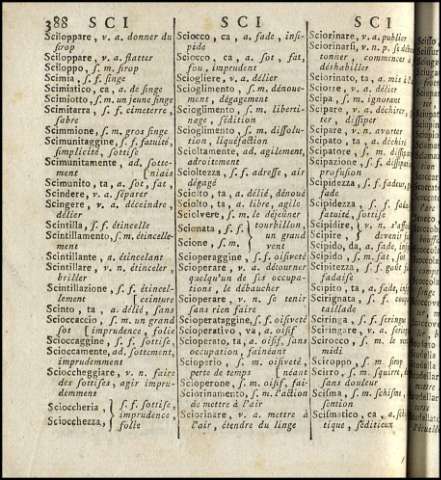 388 SCI
SCI
SCI
Sciloppare, v. a. donner du
sirop
Sciloppare, v. a. flatter
Sciloppo, s. m. sirop
Scimia, s. f. singe
Scimiatico, ca, a. de singe
Scimiotto, s. m. un jeune singe
Scimitarra, s. f. cimeterre,
sabre
Scimmione, s. m. gros singe
Scimunitaggine, s. f. fatuité,
simplicité, sottise
Scimunitamente, ad. sotte-
ment [niais
Scimunito, ta, a. sot, fat,
Scindere, v. a. séparer
Scingere, v. a. déceindre,
délier
Scintilla, s. f. étincelle
Scintillamento, s. m. étincelle-
ment
Scintillante, a. étincelant
Scintillare, v. n. étinceler,
briller
Scintillazione, s. f. étincel-
lement [ceinture
Scinto, ta, a. délié, sans
Scioccaccio, s. m. un grand
sot [imprudence, folie
Scioccaggine, s. f. sottise,
Scioccamente, ad. sottement,
imprudemment
Scioccheggiare, v. n. faire
des sottises, agir impru-
demment
Scioccheria, } s. f. sottise,
imprudence,
Sciocchezza, } folie
Sciocco, ca, a. fade, insi-
pide
Sciocco, ca, a. sot, fat,
fou, imprudent
Sciogliere, v. a. délier
Scioglimento, s. m. dénoue-
ment, dégagement
Scioglimento, s. m. liberti-
nage, sédition
Scioglimento, s. m. dissolu-
tion, liquéfaction
Scioltamente, ad. agilement,
adroitement
Scioltezza, s. f. adresse, air
dégagé
Sciolto, ta, a. délié, dénoué
Sciolto, ta, a. libre, agile
Sciolvere, s. m. le déjeûner
Scionata, s. f. } tourbillon,
un grand
Scione, s. m. } vent
Scioperaggine, s. f. oisiveté
Scioperare, v. a. détourner
quelqu'un de ses occupa-
tions, le débaucher
Scioperare, v. n. se tenir
sans rien faire
Scioperataggine, s. f. oisiveté
Scioperativo, va, a. oisif
Scioperato, ta, a. oisif, sans
occupation, fainéant
Scioperio, s. m. oisiveté,
perte de temps [néant
Scioperone, s. m. oisif, fai-
Sciorinamento, s. m. l'action
de mettre à l'air
Sciorinare, v. a. mettre à
l'air, étendre du linge
Sciorinare, v. a. publier
Sciorinarsi, v. n. p. se débou-
tonner, commencer à
déshabiller
Sciorinato, ta, a. mis à l'air
Sciorre, v. a. délier
Scipa, s. m. ignorant
Scipare, v. a. déchirer,
ter, dissiper
Scipare, v. n. avorter
Scipato, ta, a. déchiré
Scipatore, s. m. dissipateur
Scipazione, s. f. dissipation,
profusion
Scipidezza, s. f. fadeur,
fade
Scipidezza, s. f.
fatuité, sottise
Scipidire, } v. n. s'affadir
Scipire,
Scipido, da, a. fade, insipide
Scipido, s. m. fat, sot
Scipitezza, s. f. goût fade,
fadaise
Scipito, ta, a. fade, insipide
Scirignata, s. f. coup,
taillade
Sciringa, s. f. seringue
Sciringare, v. a. seringuer
Scirocco, s. m. le vent
midi
Sciroppo, s. m. sirop
Scirro, s. m. squirre,
sans douleur
Scisma, s. m. schisme,
sention
Scismatico, ca, a. schisma-
tique, séditieux